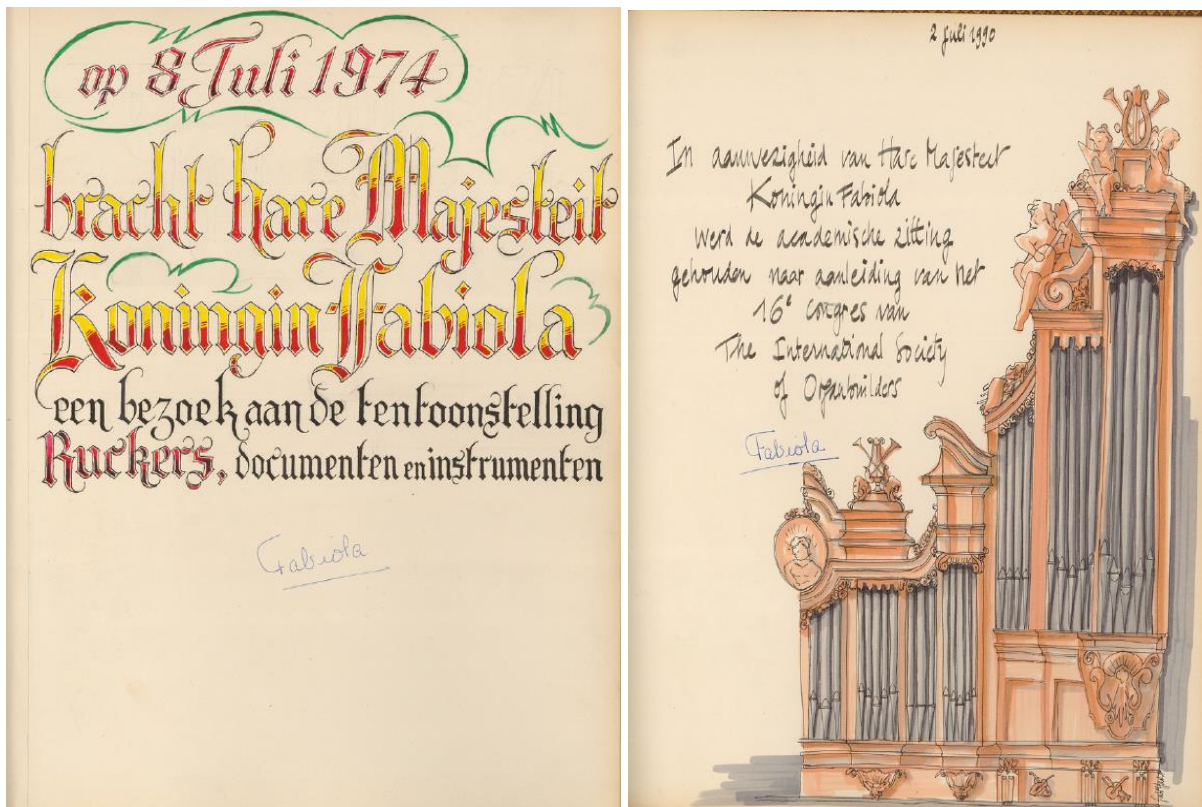 op 8 Juli 1974
bracht hare Majesteit
Koningin Fabiola
een bezoek aan de tentoonstelling
Ruckers, documenten en instrumenten
Fabiola
2 Juli 1990
In aanwezigheid van Hare Majesteit
Koningin Fabiola
werd de academische zitting
gehouden naar aanleiding van het
16e congres van
The International Society
of Organbuilders
Fabiola